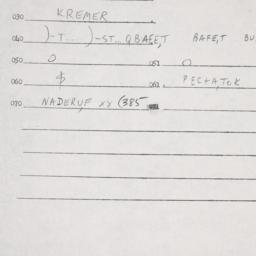 030 KREMER
040 )-T... )-ST... QBAFE,T BAFE,T BU
050 O 051 O
060 062. PEC+A,TOK
070 NADERUF xx (385